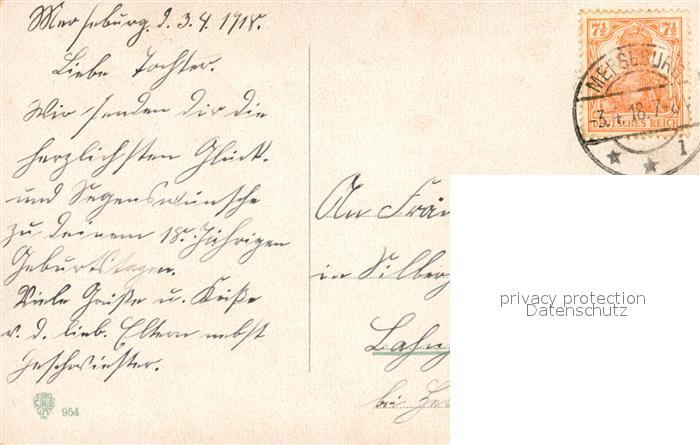 Merseburg. d. 3.4.1918.
Liebe Tochter.
Wir senden Dir die
herzlichsten Glück-
und Segenswünsche
zu Deinem 18. Jährigen
Geburtstagen.
Viele Grüße u. Küße
v. d. lieb. Eltern nebst
Geschwister.
954
7½ 7½
MERSEBURG
-3.4.18.7-8
DEUTSCHES REICH
1
An Frä
in Silberh
bei
privacy protection
Datenschutz